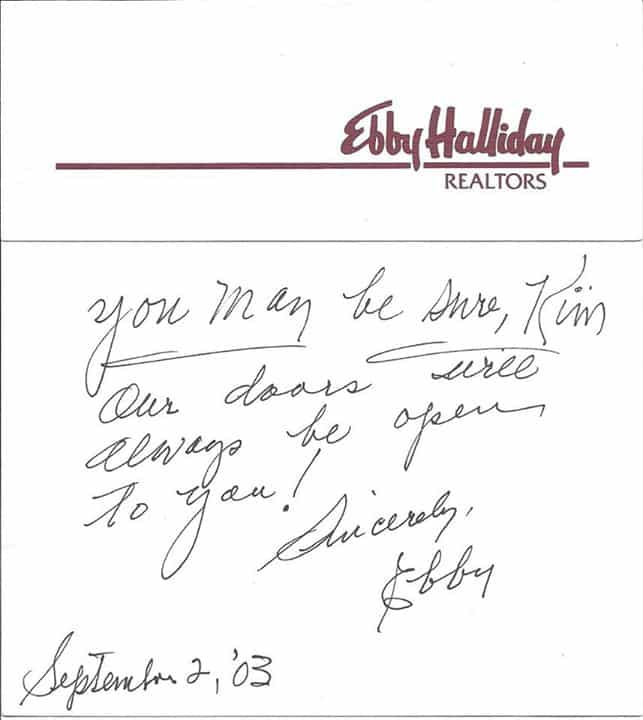 Ebby Halliday
REALTORS
you may be sure, Kim
Our doors will
always be open
to you!
Sincerely,
Ebby
September 2, '03